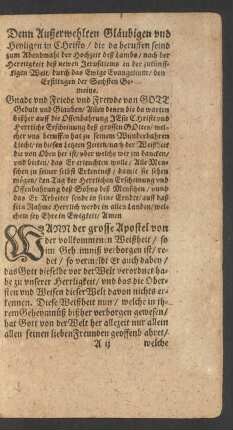 Denn Außerwehlten Gläubigen vnd
Heyligen in Christo / die da beruffen seind
zum Abendmahl der Hochzeit deß Lambs / nach der
Herrligkeit deß newen Jerusalems in der zukünff-
tigen Welt / durch das Ewige Evangelium / den
Erstlingen der Sechsten Ge-
meine.
Gnade vnd Friede vnd Frewde von GOTT
Gedult vnd Glauben / Allen denen die da warten
bißher auff die Offenbahrung JEsu Christi vnd
Herrliche Erscheinung deß grossen GOttes / wel-
cher vns beruffen hat zu seinem Wunderbahren
Liecht / in diesen Letzten Zeiten / na der Weißheit
die von Oben her ist / aber welche wir zu dancken /
vnd bitten / das Er erleuchten wolle / Alle Men-
schen zu seiner selbst Erkentnuß / damit sie sehen
mögen / den Tag der Herrlichen Erscheinung vnd
Offenbahrung deß Sohns deß Menschen / vnnd
das Er Arbeiter sende in seine Erndte / auff daß
sein Nahme Herrlich werde in allen Landen / wel-
chem sey Ehre in Ewigkeit / Amen
WANN der grosse Apostel von
der vollkommenen Weißheit / so
im Geheimnuß verborgen ist / re-
det / so vermeldt Er auch dabey /
das Gott dieselbe vor der Welt verordnet ha-
be zu vnserer Herrligkeit / vnd das die Ober-
sten vnd Weisen dieser Welt davon nichts er-
kennen. Diese Weißheit nun / welche in ih-
rem Geheymnüß bißher verborgen gewesen /
hat Gott von der Welt her allezeit nur allein
allen seinen lieben Freunden geoffenbahret /
A ij welche